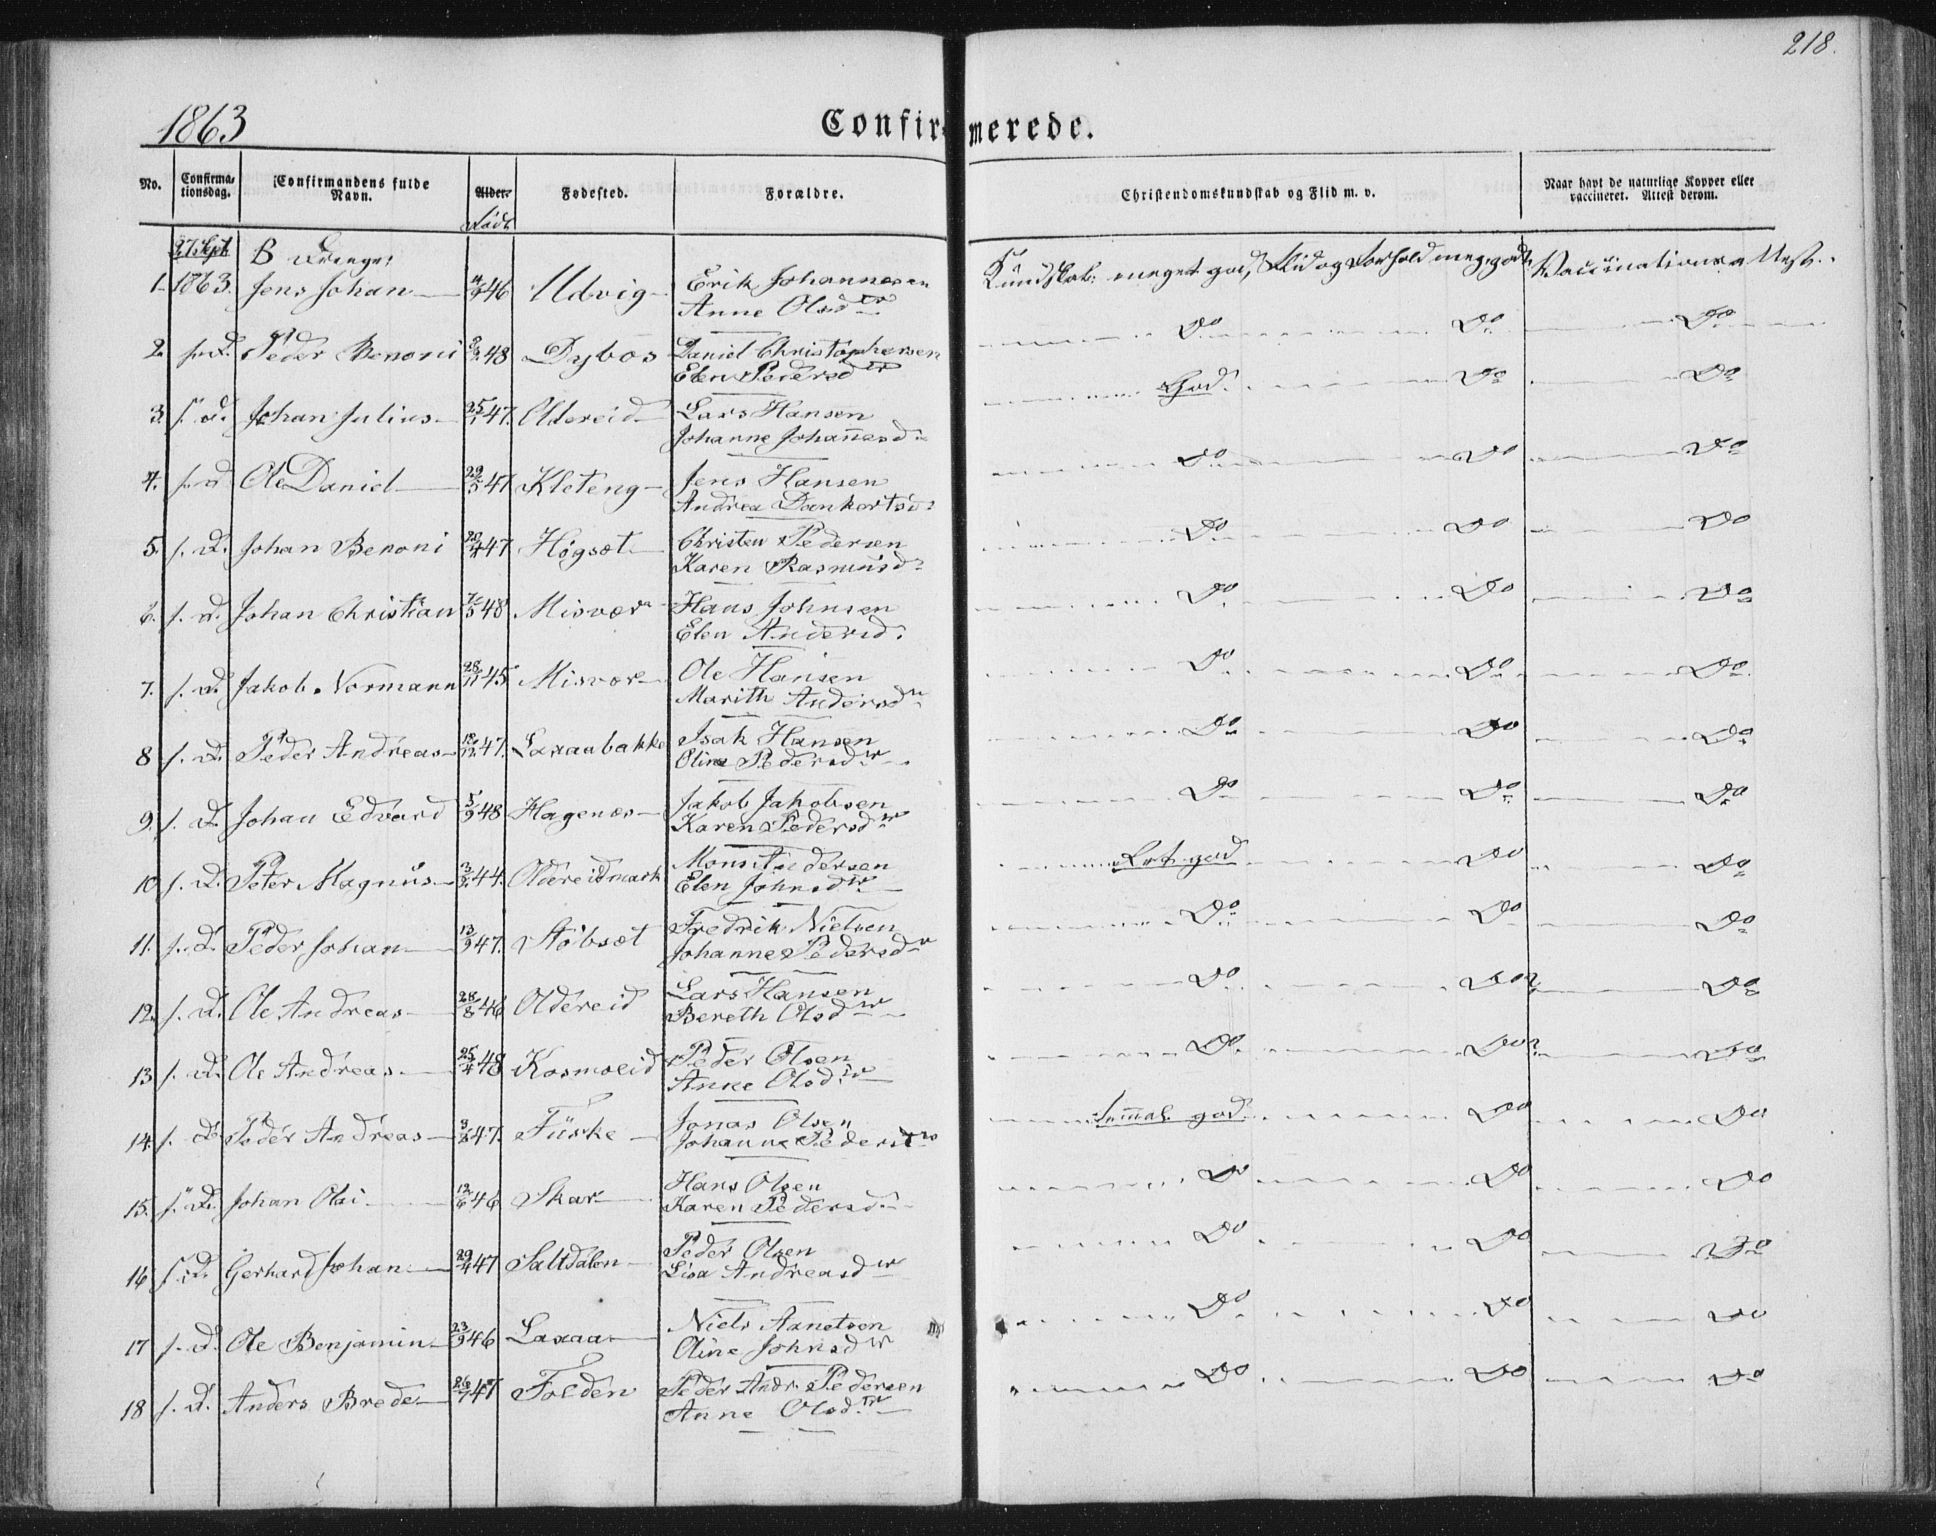 218.
1863
Confirmerede.
No.
Confirma-
tionsdag.
Confirmandens fulde
Navn.
Alder.
Födt
Fødested.
Forældre.
Christendomskundskab og Flid m. v.
Naar havt de naturlige Kopper eller
vaccineret. Attest derom.
27 Sept B Drenge.
1. 1863. Jens Johan 46 Udvig Erik Johannesen Kundskab: meget god, Flid og Forhold meg. godt. Vaccinationsattest.
Anne Olsdtr
2. s. D. Peder Benoni 48 Dybos Daniel Christophersen Do Do Do
Elen Pedersdtr
3. s. D. Johan Julius 25/1 47. Oldereid Lars Hansen God. Do Do
Johanne Johannesd.
4. s. D Ole Daniel 29/5 47 Kleteng Jens Hansen Do Do Do
Andrea Dankertsd.
5. s. D. Johan Benoni 20/4 47 Høgset Christen Pedersen Do Do Do
Karen Rasmusd.
6. s. D. Johan Christian 48 Misvær Hans Johnsen Do Do Do
Elen Andersd.
7. s. D. Jakob Normann 28/11 45 Misvær Ole Hansen Do Do Do
Marith Andersd.
8 s. D. Peder Andreas 18/12 47. Laxaabakke Isak Hansen Do Do Do
Oline Pedersdtr
9. s. D. Johan Edvard 5/9 48 Hagenæs Jakob Jakobsen Do Do Do
Karen Pedersdtr
10. s. D. Peter Magnus 44. Oldereidmark Mons Andersen Do Do
Elen Johnsdtr
11. s. D. Peder Johan 13/9 47. Støbset Fredrik Nielsen Do Do Do
Johanne Pedersd
12. s. D. Ole Andreas 28/8 46 Oldereid Lars Hansen Do Do Do
Bereth Olsdtr
13. s. D. Ole Andreas 25/4 48 Kosmoeid Peder Olsen Do Do Do
Anne Olsdtr
14. s. D. Peder Andreas 47. Füske Jonas Olsen god. Do Do
Johanne Pedersdtr
15. s. D. Johan Olai 12/6 46 Skar Hans Olsen Do Do Do
Karen Pedersd.
16 s. D. Gerhard Johan 29/4 47 Saltdalen Peder Olsen Do Do Do
Lisa Andreasdtr
17 s. D. Ole Benjamin 23/9 46 Laxaa Niels Aanetsen Do Do Do
Oline Johnsdtr
18 s. D. Anders Brede 26/7 47 Folden Peder Andr. Pedersen Do Do Do
Anne Olsdtr